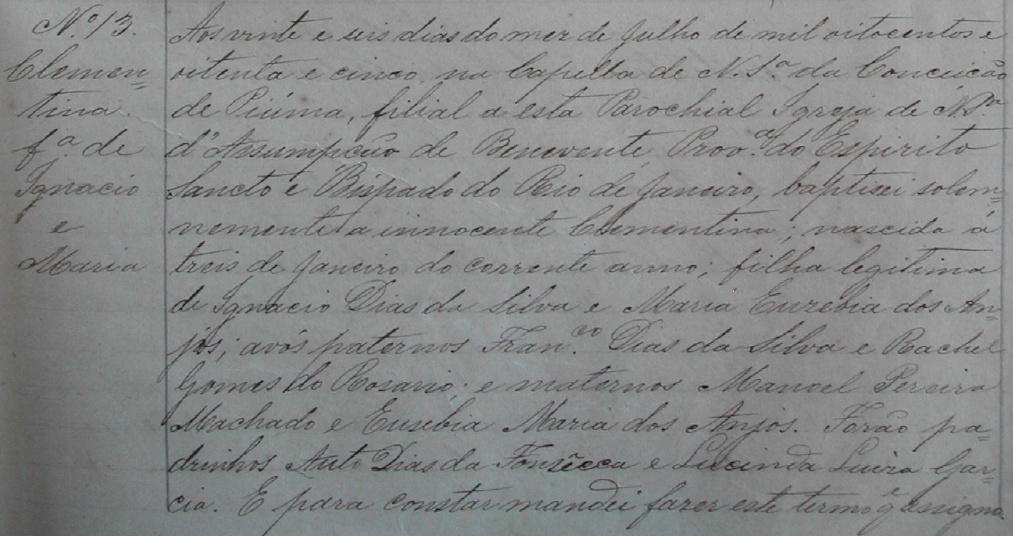 Nº 13.
Clemen=
tina.
fª. de
Ignacio
e
Maria
Aos vinte e seis dias do mez de Julho de mil oitocentos e
oitenta e cinco, na Capella de N. Sª. da Conceicão
de Piúma, filial a esta Parochial Igreja de N.
d'Assumpcão de Benevente, Provª. do Espirito
Sancto e Bispado do Rio de Janeiro, baptisei solem=
nemente a innocente Clementina; nascida á
treis de Janeiro do corrente anno; filha legitima
de Ignacio Dias da Silva e Maria Euzebia dos An=
jos; avós paternos Fran.co Dias da Silva e Rachel
Gomes do Rosario; e maternos Manoel Pereira
Machado e Eusebia Maria dos Anjos. Forão pa=
drinhos Dias da Fonsêcca e Lucinda Luiza Gar=
cia. E para constar mandei fazer este termo e q assigno.